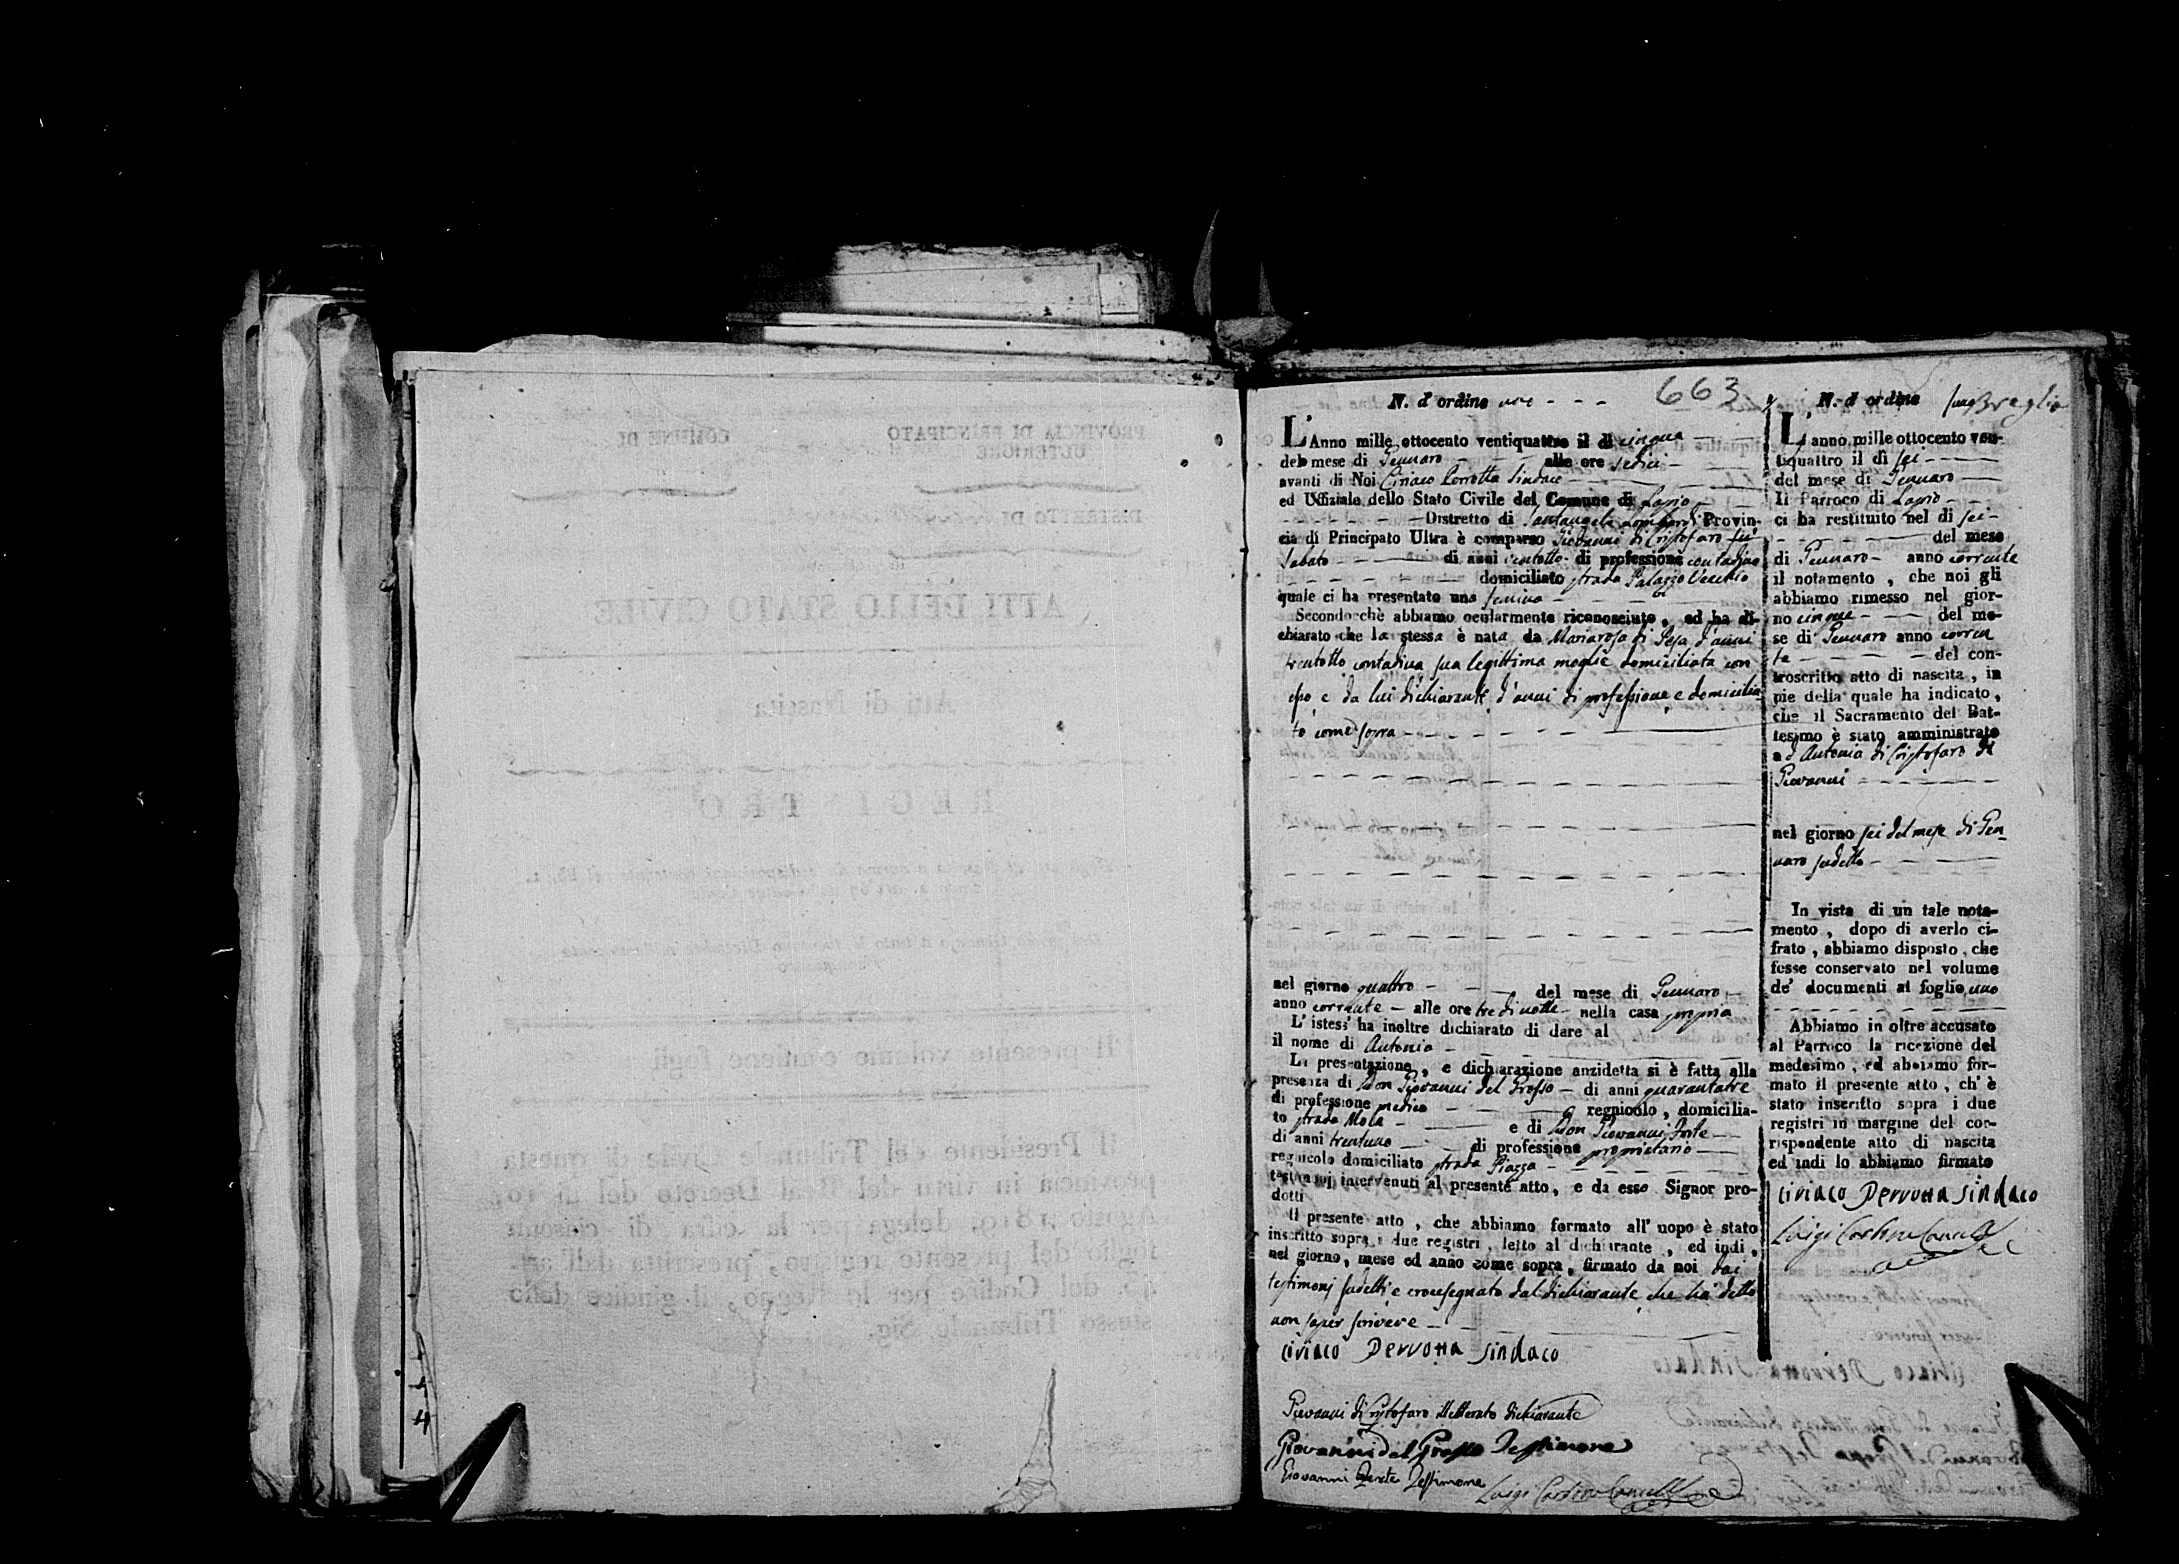 663
N. d' ordine uno
L'Anno mille ottocento ventiquattro il dì cinque
del mese di Gennaro alle ore sedici
avanti di Noi Ciriaco Perrotta Sindaco
ed Uffiziale dello Stato Civile del Comune di Lapio
Distretto di Santangelo Lombardi Provin-
cia di Principato Ultra è comparso Giovanni di Cristofaro fu
Sabato di anni trentotto di professione contadino
domiciliato strada Palazzo Vecchio
quale ci ha presentato una femina
Secondocchè abbiamo ocularmente riconosciuto, ed ha di-
chiarato che la stessa è nata da Mariarosa di Pesa d'anni
trentotto contadina sua legittima moglie domiciliata con
esso e da lui dichiarante d'anni di professione e domicilia
to come sopra
nel giorno quattro del mese di Gennaro
anno corrente alle ore tre di notte nella casa propria
L' istess' ha inoltre dichiarato di dare al
il nome di Antonia
La presentazione, e dichiarazione anzidetta si è fatta alla
presenza di Don Giovanni del Grosso di anni quarantatre
di professione medico regnicolo, domicilia-
to strada Mola e di Don Giovanni Forte
di anni trentuno di professione proprietario
regnicolo domiciliato strada Piazza
testimonj intervenuti al presente atto, e da esso Signor pro-
dotti
Il presente atto, che abbiamo formato all' uopo è stato
inscritto sopra i due registri, letto al dichiarante, ed indi,
nel giorno, mese ed anno come sopra, firmato da noi dai
testimoni sudetti e crocesegnato dal dichiarante che ha detto
non saper scrivere
Ciriaco Perrotta Sindaco
Giovanni di Cristofaro illetterato dichiarante
Giovanni del Grosso Testimone
Giovanni Forte Testimone
Luigi
N. d' ordine
L' anno mille ottocento ven-
tiquattro il dì sei
del mese di Gennaro
Il Parroco di Lapio
ci ha restituito nel dì sei
del mese
di Gennaro anno corrente
il notamento, che noi gli
abbiamo rimesso nel gior-
no cinque del me-
se di Gennaro anno corren
te del con-
troscritto atto di nascita, in
pie della quale ha indicato,
che il Sacramento del Bat-
tesimo è stato amministrato
ad Antonia di Cristofaro di
Giovanni
nel giorno sei del mese di Gen
naro sudetto
In vista di un tale nota-
mento, dopo di averlo ci-
frato, abbiamo disposto, che
fosse conservato nel volume
de' documenti al foglio uno
Abbiamo in oltre accusato
al Parroco la ricezione del
medesimo, ed abbiamo for-
mato il presente atto, ch' è
stato inscritto sopra i due
registri in margine del cor-
rispondente atto di nascita
ed indi lo abbiamo firmato
Ciriaco Perrotta Sindaco
Luigi